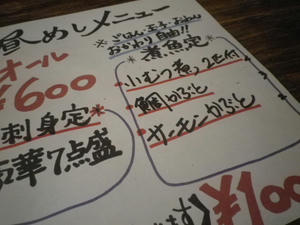 昼めしメニュー
オール
¥600
*ごはん、玉子、おしんこ
おかわり自由!!
刺身定*
豪華7点盛
*煮魚定
・いむつ煮、2ヒ付
・鯛かぶと
・サーモンかぶと